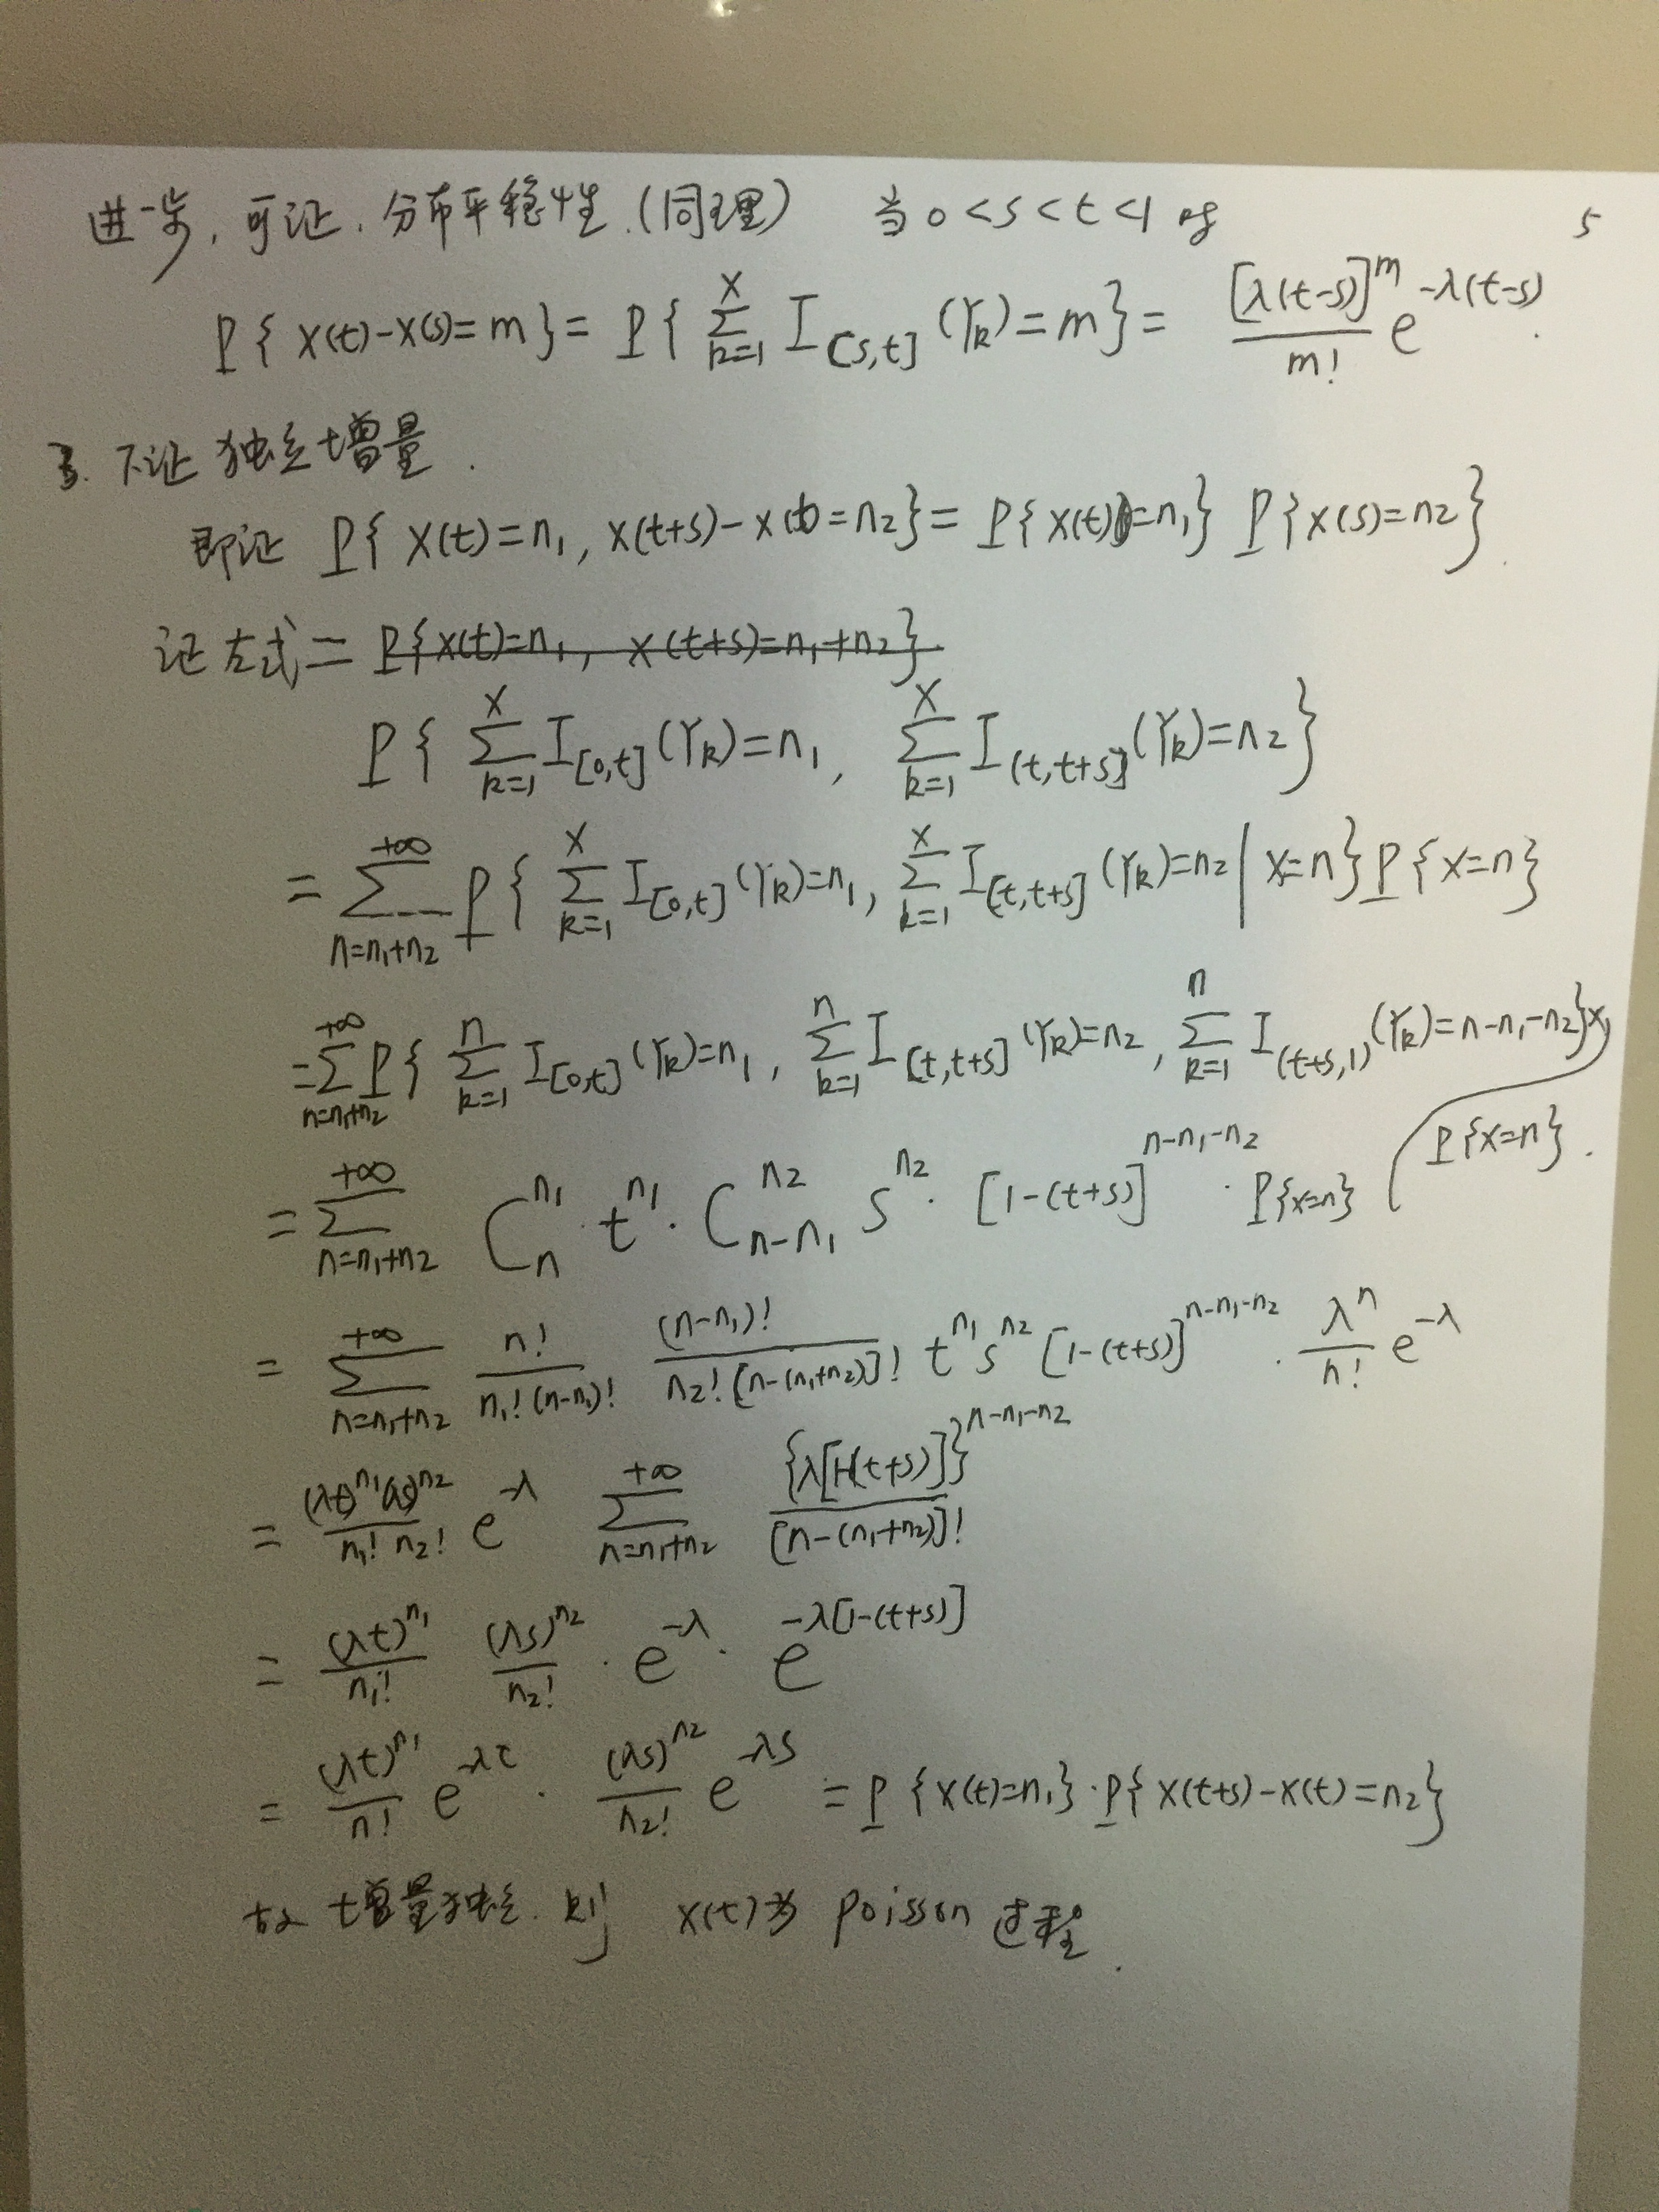 进一步，可证，分布平稳性.(同理) 当0<s<t<1时 5
P{X(t)-X(s)=m}=P{∑_{k=1}^{X} I_{[s,t]}(Y_k)=m}= [λ(t-s)]^m/m! e^{-λ(t-s)}.
3. 下证独立增量.
即证 P{X(t)=n₁, X(t+s)-X(t)=n₂}=P{X(t)=n₁} P{X(s)=n₂}.
证左式= P{X(t)=n₁, X(t+s)=n₁+n₂}
P{∑_{k=1}^{X} I_{[0,t]}(Y_k)=n₁, ∑_{k=1}^{X} I_{(t,t+s]}(Y_k)=n₂}
= ∑_{n=n₁+n₂}^{+∞} P{∑_{k=1}^{X} I_{[0,t]}(Y_k)=n₁, ∑_{k=1}^{X} I_{[t,t+s]}(Y_k)=n₂ | X=n}P{X=n}
= ∑_{n=n₁+n₂}^{+∞} P{∑_{k=1}^{n} I_{[0,t]}(Y_k)=n₁, ∑_{k=1}^{n} I_{[t,t+s]}(Y_k)=n₂, ∑_{k=1}^{n} I_{(t+s,1)}(Y_k)=n-n₁-n₂}×
P{X=n}.
= ∑_{n=n₁+n₂}^{+∞} C_n^{n₁}·t^{n₁}·C_{n-n₁}^{n₂} s^{n₂}·[1-(t+s)]^{n-n₁-n₂}·P{X=n}
= ∑_{n=n₁+n₂}^{+∞} n!/(n₁!(n-n₁)!) (n-n₁)!/(n₂![n-(n₁+n₂)]!) t^{n₁}s^{n₂}[1-(t+s)]^{n-n₁-n₂}·λ^n/n! e^{-λ}
= (λt)^{n₁}(λs)^{n₂}/(n₁! n₂!) e^{-λ} ∑_{n=n₁+n₂}^{+∞} {λ[1-(t+s)]}^{n-n₁-n₂}/[n-(n₁+n₂)]!
= (λt)^{n₁}/n₁! (λs)^{n₂}/n₂!·e^{-λ}·e^{-λ[1-(t+s)]}
= (λt)^{n₁}/n! e^{-λt}·(λs)^{n₂}/n₂! e^{-λs} = P{X(t)=n₁}·P{X(t+s)-X(t)=n₂}
故增量独立. 则 X(t)为 Poisson 过程.